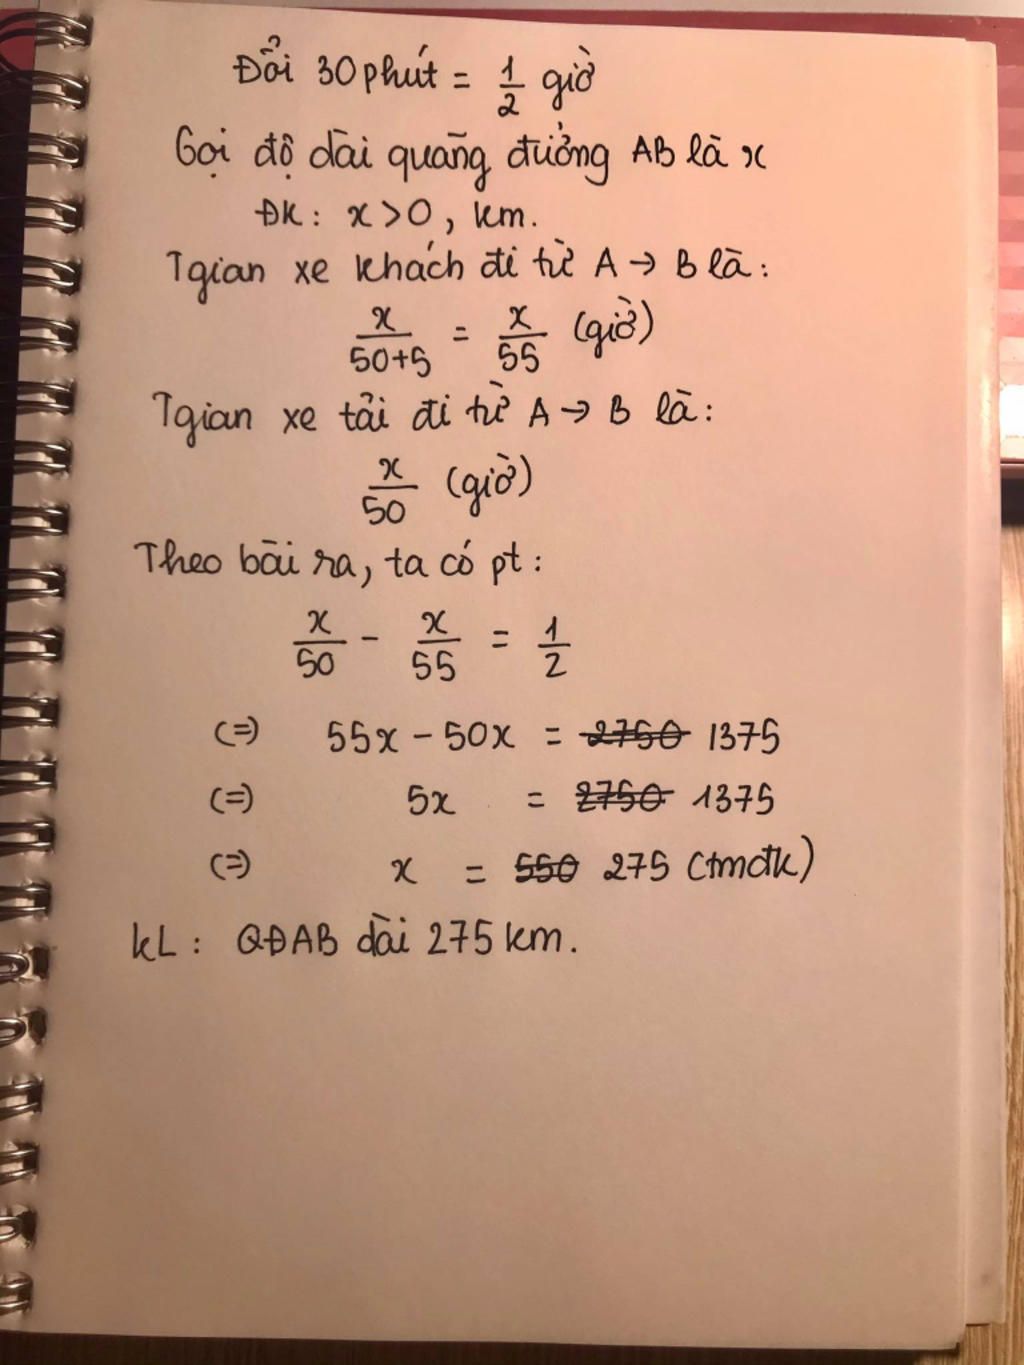 Đổi 30 phút = 1/2 giờ
Gọi độ dài quãng đường AB là x
ĐK: x > 0, km.
Tgian xe khách đi từ A → B là:
x/(50+5) = x/55 (giờ)
Tgian xe tải đi từ A → B là:
x/50 (giờ)
Theo bài ra, ta có pt:
x/50 - x/55 = 1/2
(=) 55x - 50x = ~~2750~~ 1375
(=) 5x = ~~2750~~ 1375
(=) x = ~~550~~ 275 (tmđk)
KL: QĐAB dài 275 km.